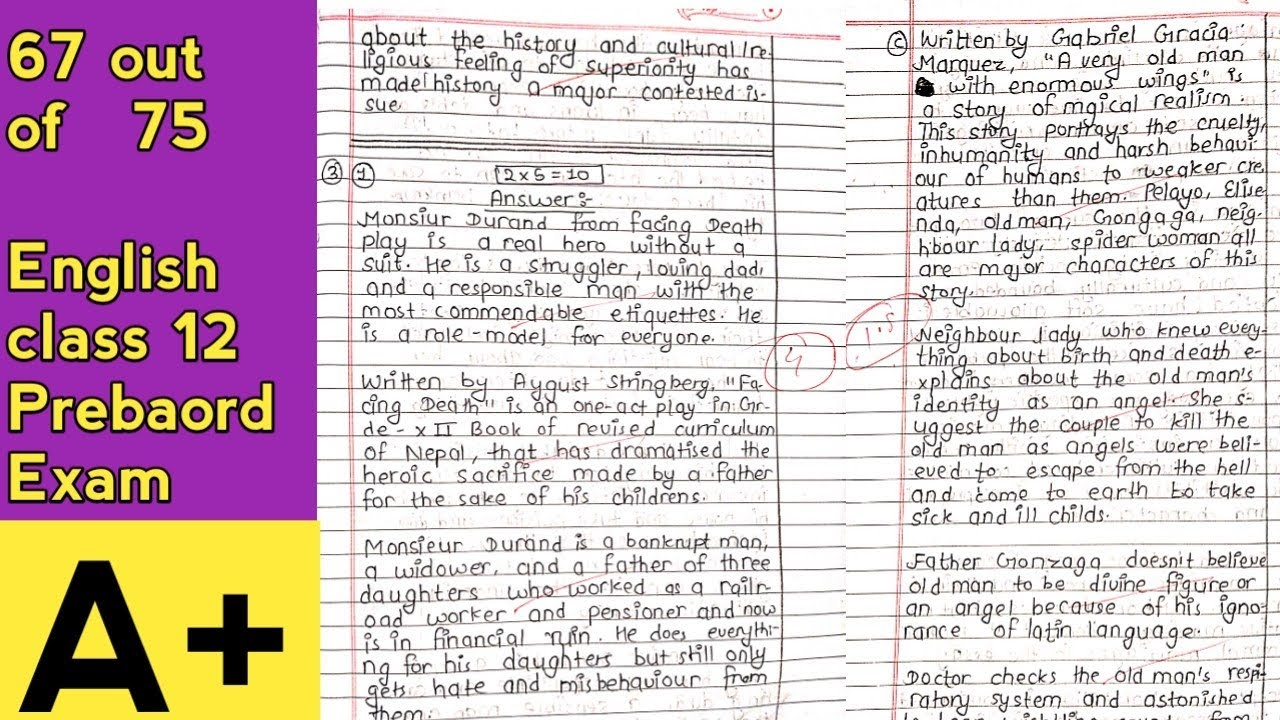 67 out
of 75
English
class 12
Prebaord
Exam
A+
about the history and cultural/re
ligious feeling of superiority has
made history a major contested is-
sue.
3 1
2x5=10
Answer:-
Monsiur Durand from facing Death
play is a real hero without a
suit. He is a struggler, loving dad,
and a responsible man with the
most commendable etiquettes. He
is a role-model for everyone.
4
Written by Aygust Stringberg, "Fa-
cing Death" is an one-act play in Gr-
de-XII Book of revised curriculum
of Nepal, that has dramatised the
heroic sacrifice made by a father
for the sake of his childrens.
Monsieur Durand is a bankrupt man,
a widower, and a father of three
daughters who worked as a railr-
oad worker and pensioner and now
is in financial ruin. He does everythi-
ng for his daughters but still only
gets hate and misbehaviour from
them.
c Written by Gabriel Gracia
Marquez, "A very old man
with enormous wings" is
a story of mgical realism.
This story portrays the cruelty,
inhumanity and harsh behavi-
our of humans to weaker cre
atures than them. Pelayo, Elise
nda, old man, Gongaga, neig-
hbour lady, spider woman all
are major characters of this
story.
1.5
Neighbour lady who knew every-
thing about birth and death e-
xplains about the old man's
identity as an angel. She s-
uggest the couple to kill the
old man as angels were beli-
eved to escape from the hell
and come to earth to take
sick and ill childs.
Father Gonzaga doesn't believe
old man to be divine figure or
an angel because of his igno-
rance of latin language.
Doctor checks the old man's respi-
ratory system and astonished